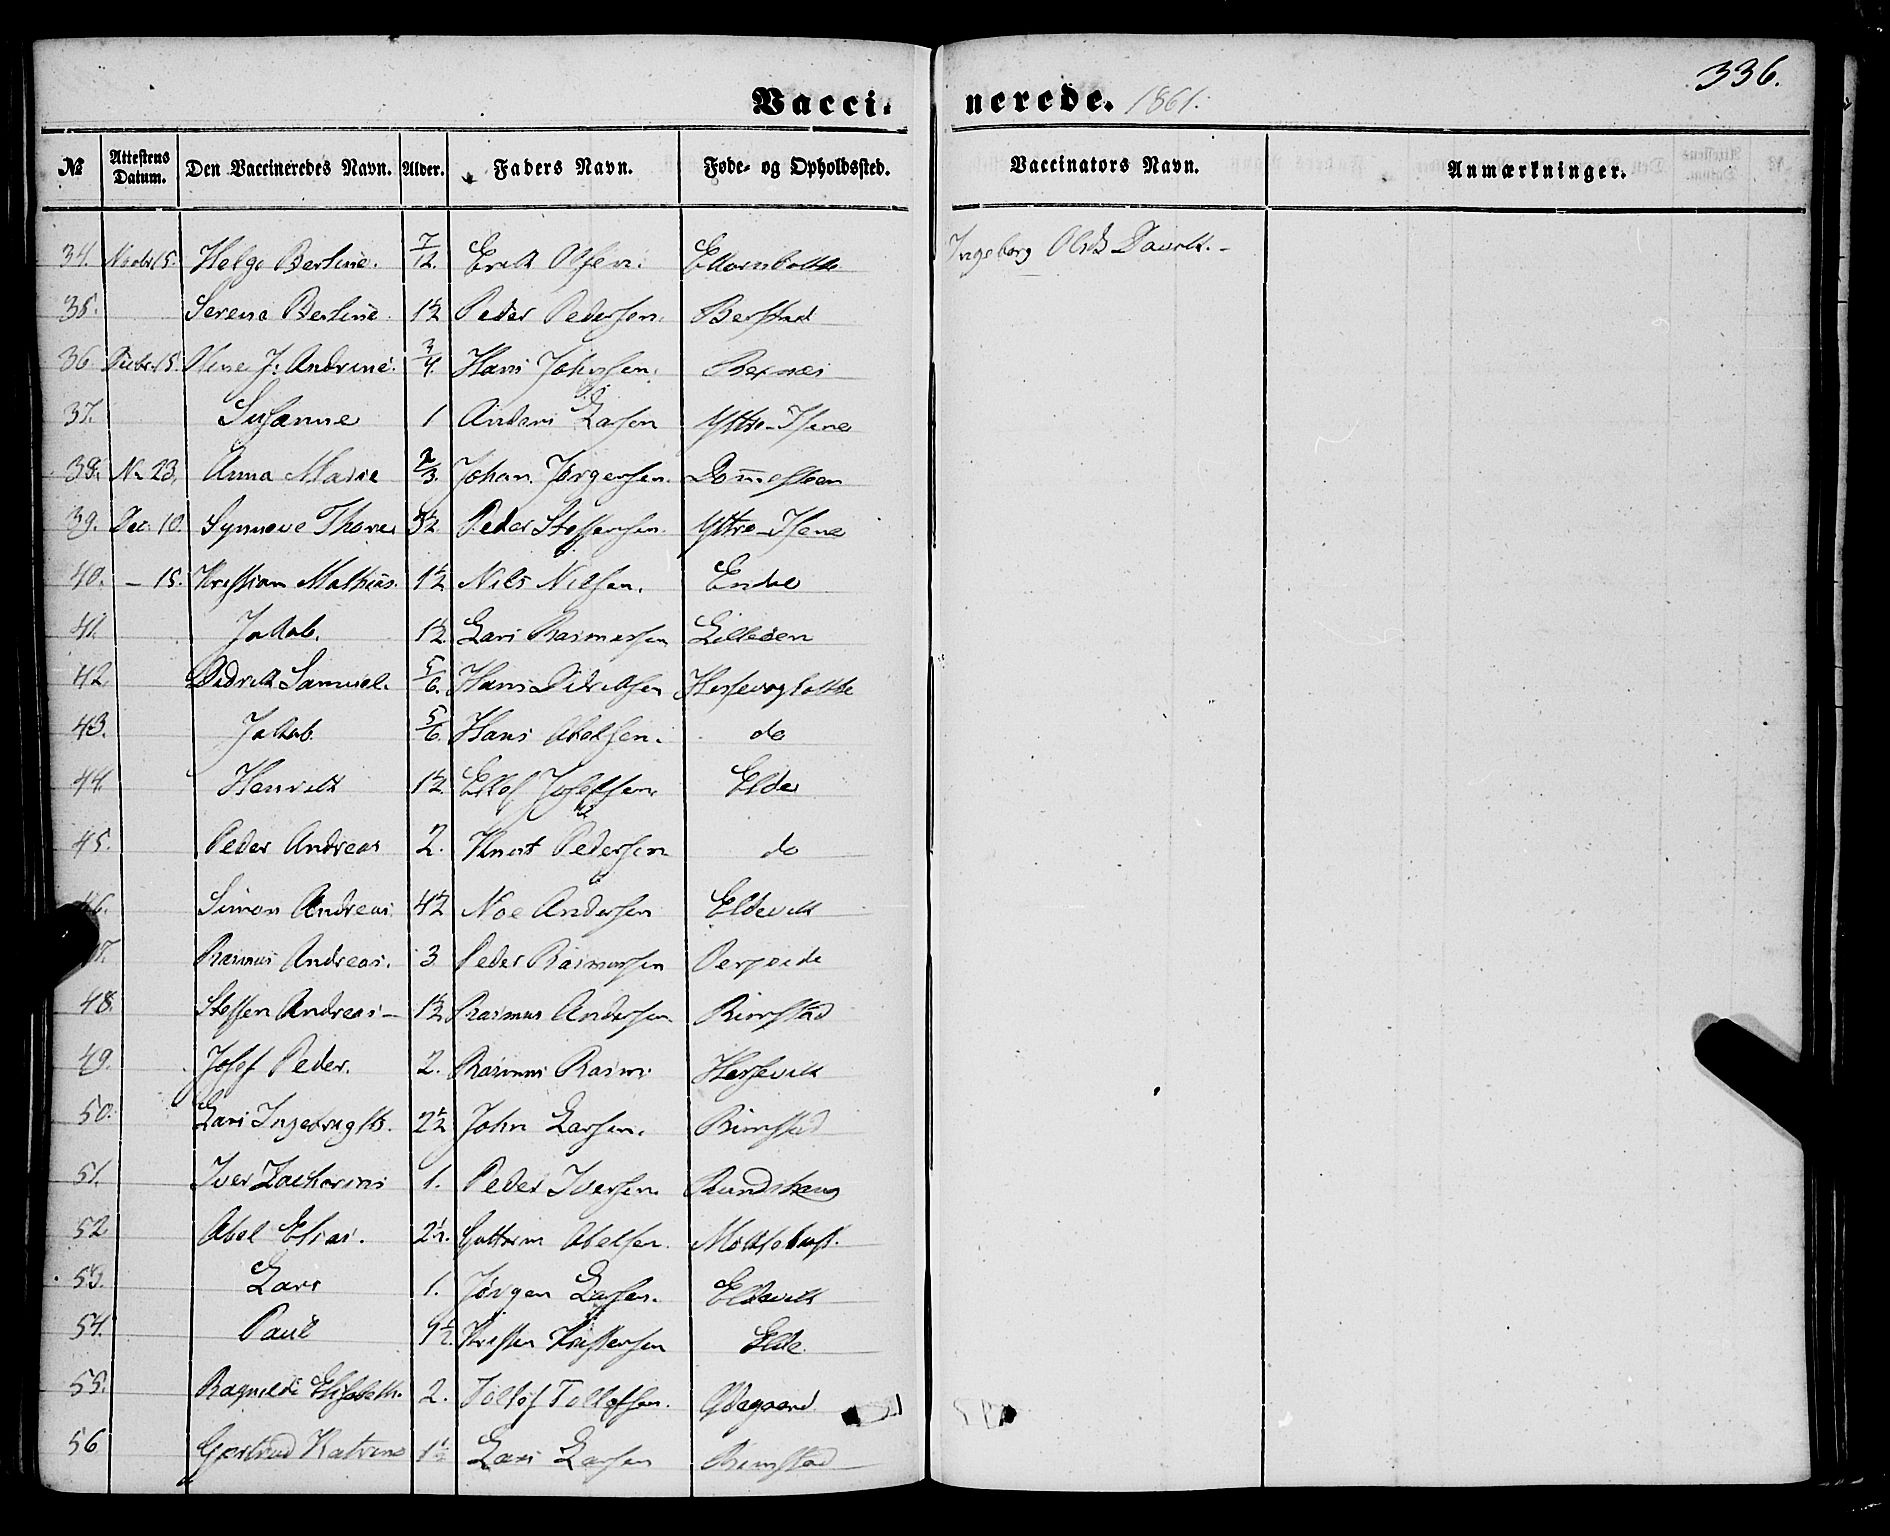 336.
Vacci- nerede. 1861.
№ Attestens Datum. Den Vaccineredes Navn. Alder. Faders Navn. Føde- og Opholdssted. Vaccinators Navn. Anmærkninger.
34. Novbr 15. Helge Berline. 7/12. Erik Olsen. Ingeborg Olsd.
35. Serena Berline 1½ Peder Pedersen. Berstad
36. 15. Oline J. Andrine. 3/4. Hans Johnsen.
37. Susanne 1 Anders Larsen Yttre-Husene
38. 23. Anna Marie 2/3. Johan Jørgensen.
39. Dec. 10. Synneve Thorine 3½ Peder Steffensen. Yttre-Husene
40. – 15. Kristian Mathias. 1½ Nils Nilsen. Endal
41. Jakob. 1½ Lars Rasmussen
42 Didrik Samuel. 5/6. Hans Didriksen
43. Jakob. 5/6. Hans Abelsen. do
44. Henrik 1½ Ellef Josefsen. Elde
45. Peder Andreas 2. Knut Pedersen do
46. Simon Andreas 4½ Noe Andersen Eldevik
47. Rasmus Andreas. 3 Peder Rasmussen
48. Steffen Andreas – 1½ Rasmus Andersen Rimstad
49. Josef Peder. 2. Rasmus Rasm:
50. Lars 2½ John Larsen. Rimstad
51. Iver Zacharias 1. Peder Iversen
52 Abel Elias. 2½. Guttorm Abelsen.
53. Lars 1. Jørgen Larsen. Eldevik
54. Paul Kristen Kristensen Elde
55. Ragnilde Elisabeth. 2. Tollef Tollefsen. Ødegaard
56 Gertrud Katrine 1½ Lars Larsen Rimstad